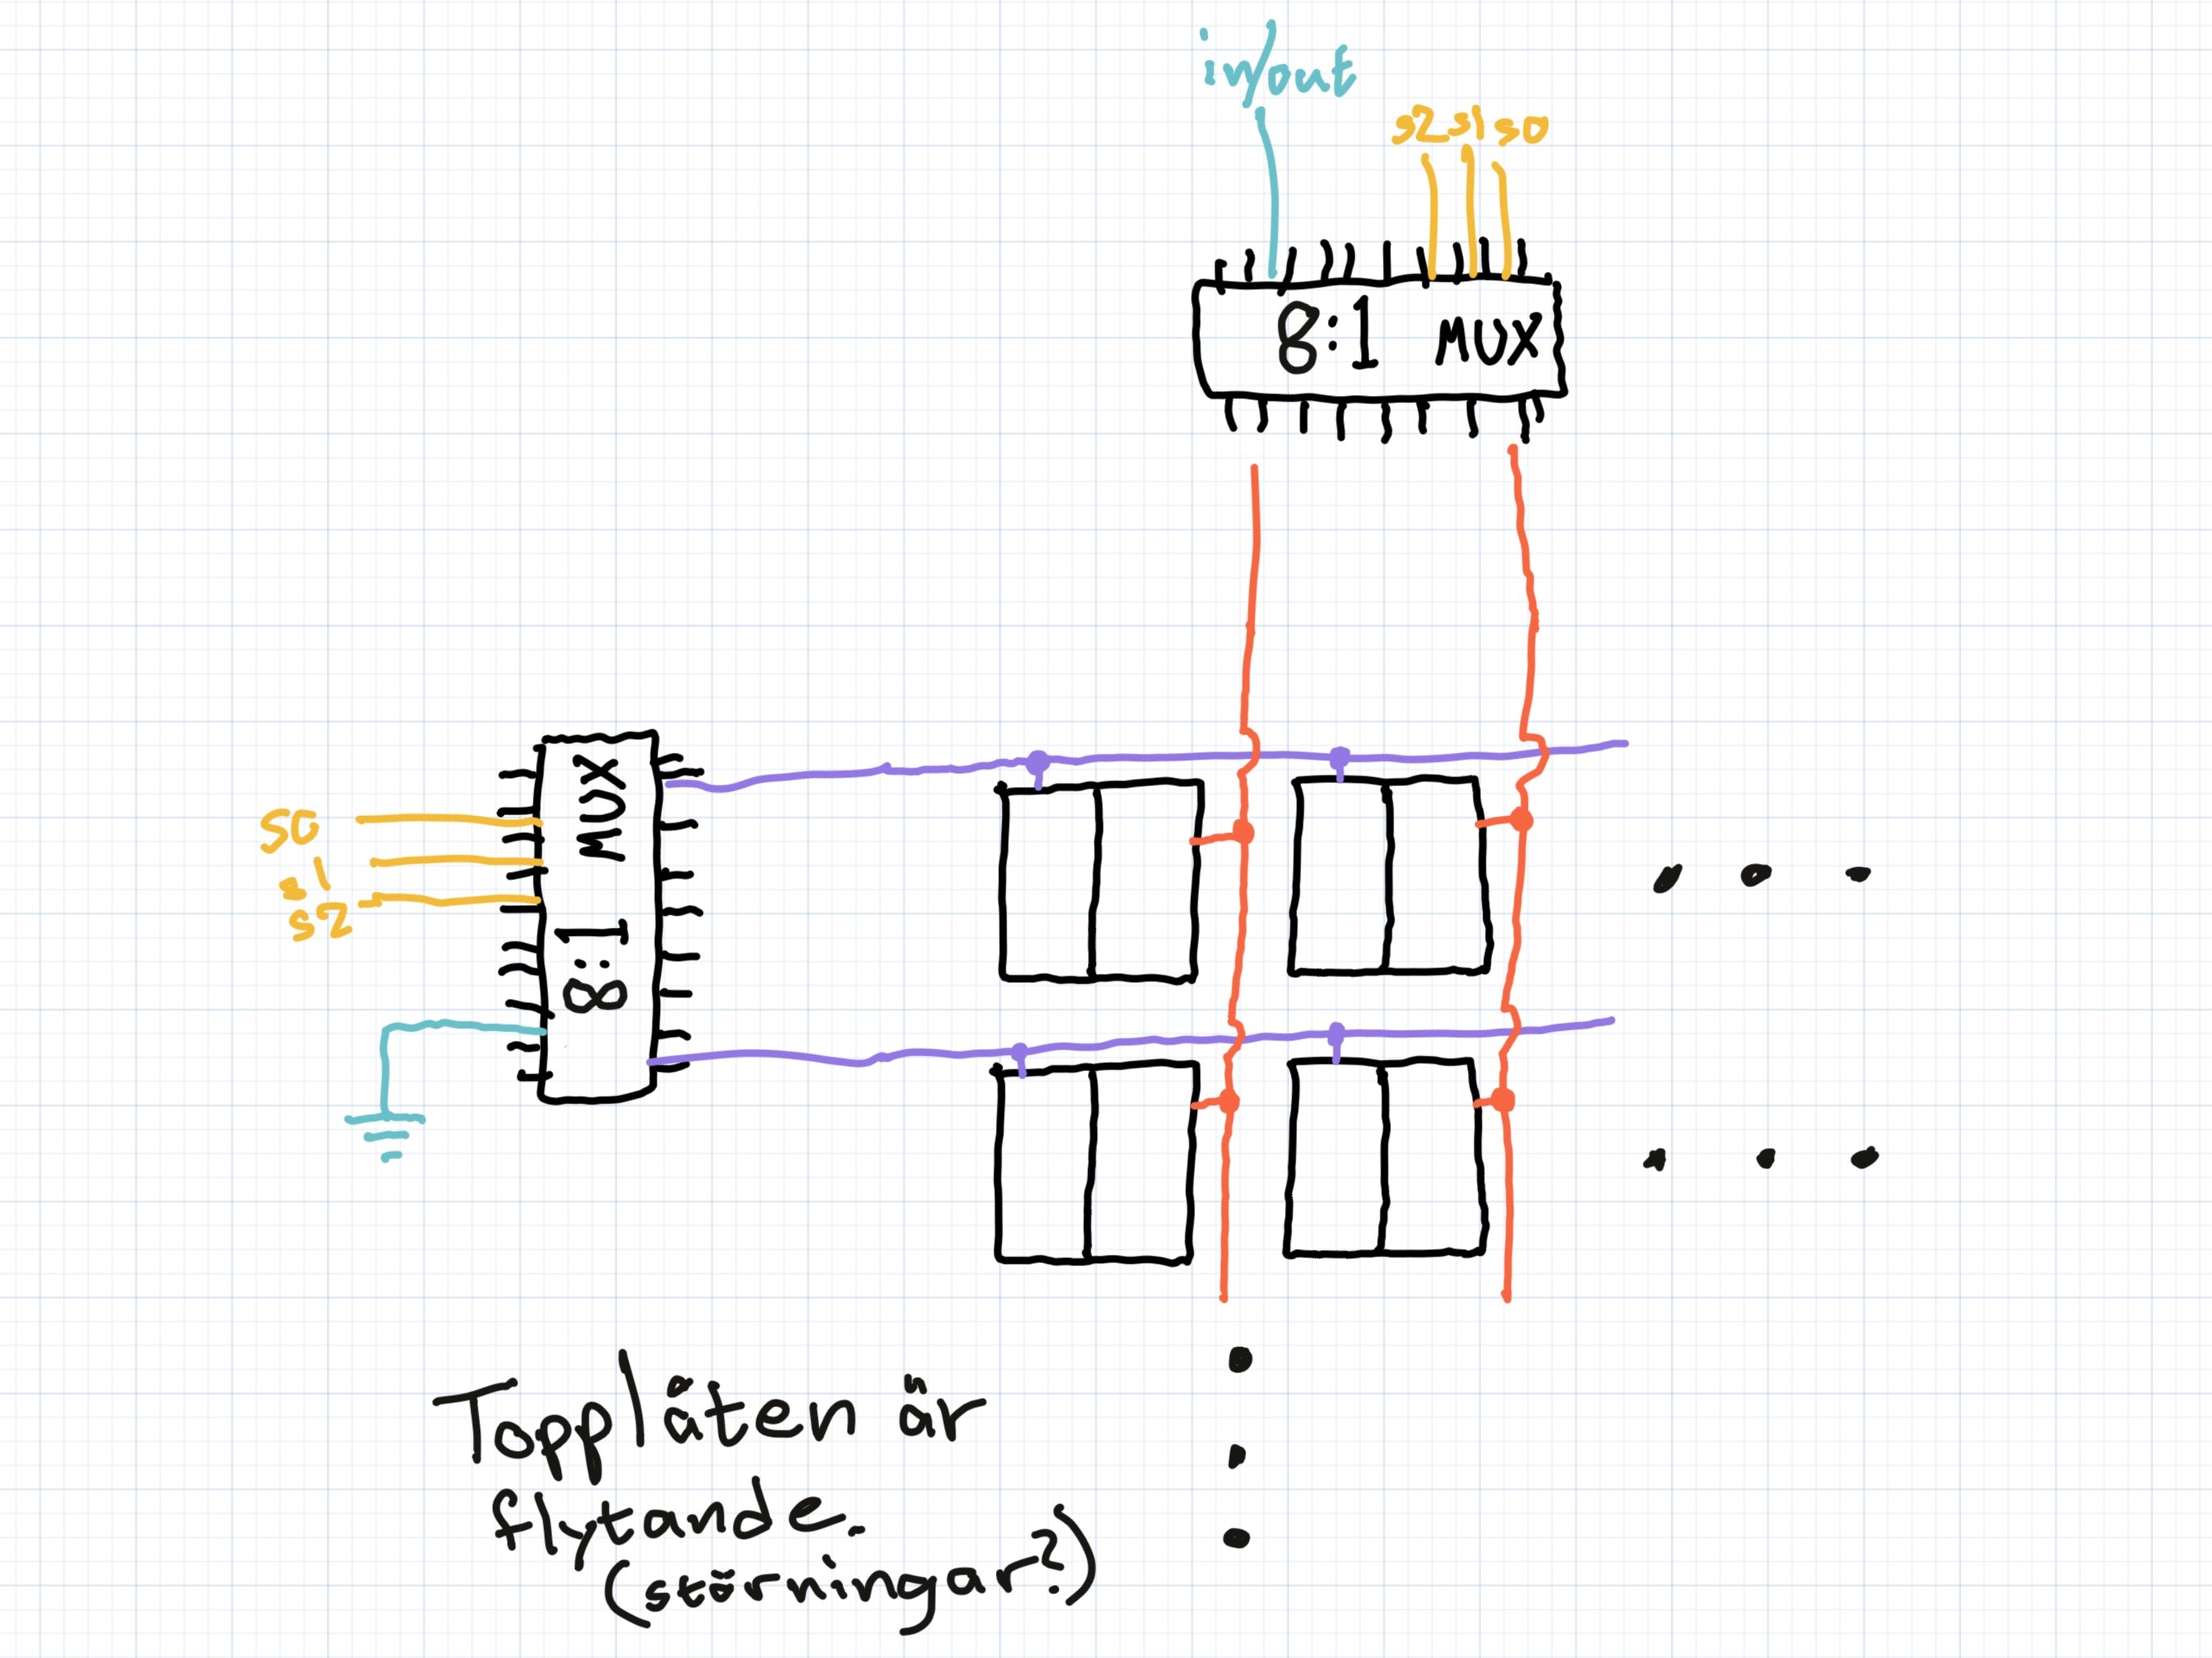 in/out
s2 s1 s0
8:1 MUX
8:1 MUX
s0
s1
s2
Topplåten är
flytande.
(störningar?)